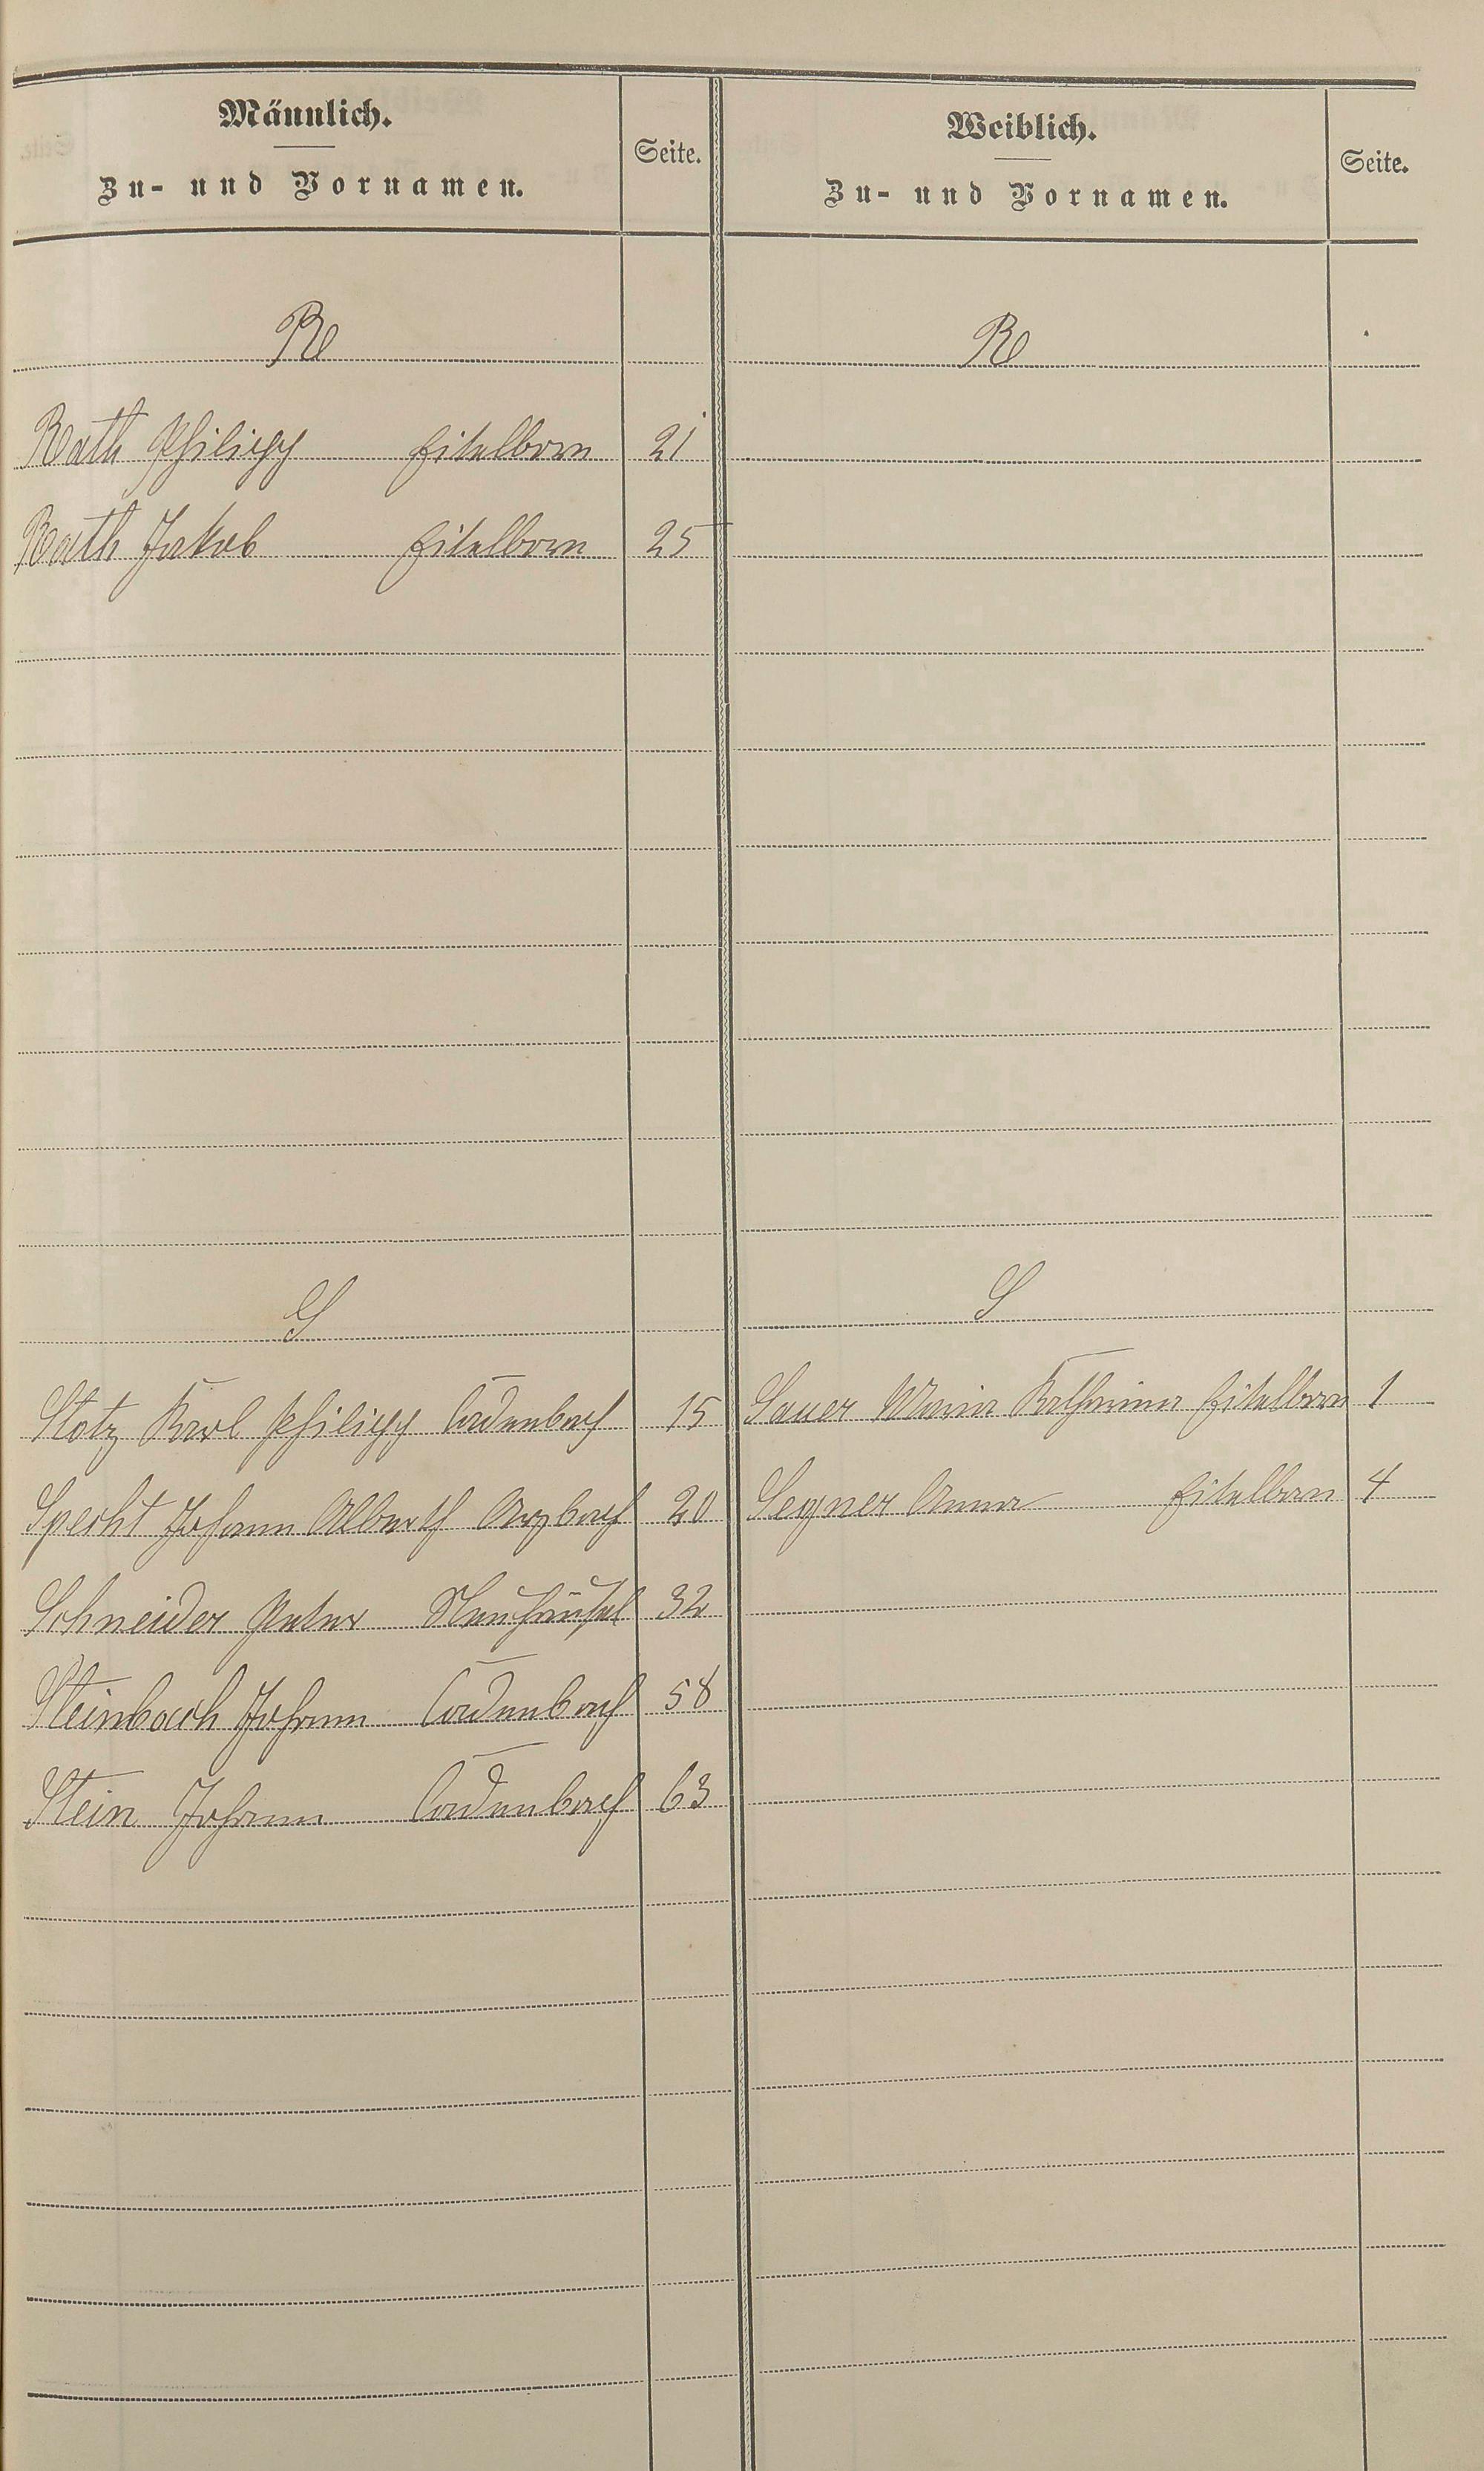 Männlich.
Zu- und Vornamen.
Seite.
Weiblich.
Zu- und Vornamen.
Seite.
R
R
Rath Philipp Eitelborn 21
Rath Jakob Eitelborn 25
S
S
Stotz Karl Philipp Cadenbach 15
Sauer Maria Katharina Eitelborn 1
Specht Johann Alberth Arzbach 20
Segner Anna Eitelborn 4
Schneider Peter Neuhäusel 32
Steinbach Johann Cadenbach 58
Stein Johann Cadenbach 63